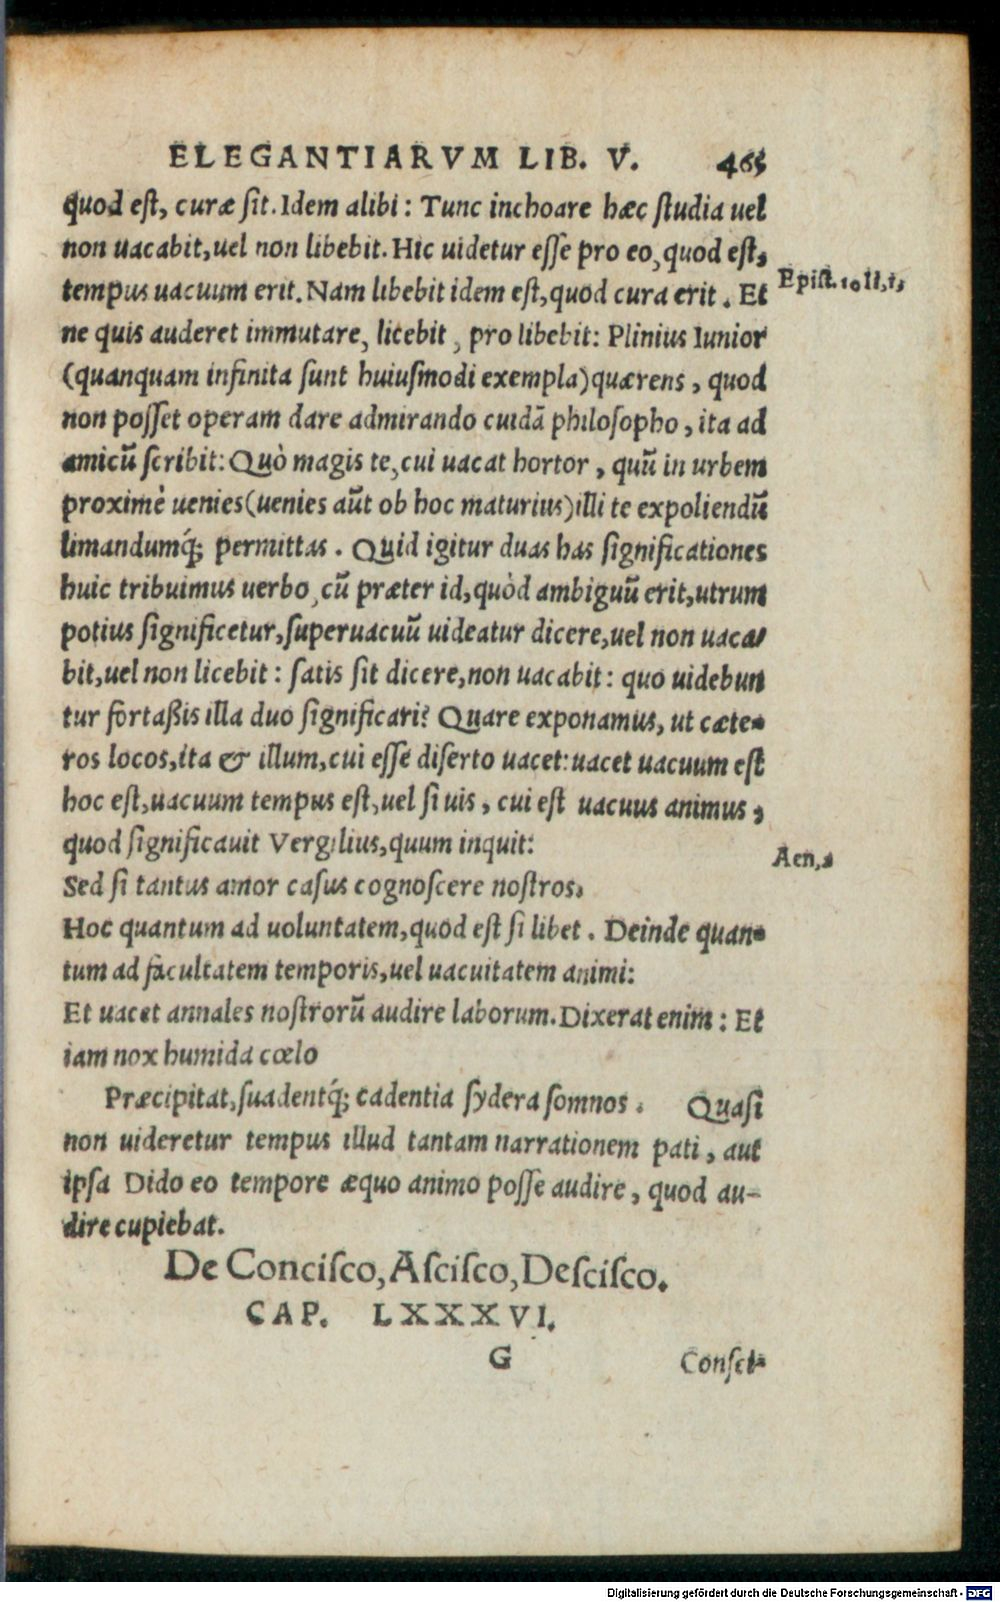 ELEGANTIARVM LIB. V. 465
quod eſt, curæ ſit. Idem alibi: Tunc inchoare hæc ſtudia uel
non uacabit, uel non libebit. Hic uidetur eſſe pro eo, quod eſt,
tempus uacuum erit. Nam libebit idem eſt, quod cura erit. Et
Epiſt. 10 li, 1,
ne quis auderet immutare, licebit, pro libebit: Plinius Iunior
(quanquam infinita ſunt huiuſmodi exempla) quærens, quod
non poſſet operam dare admirando cuidã philoſopho, ita ad
amicũ ſcribit: Quò magis te, cui uacat hortor, quũ in urbem
proximè uenies (uenies aũt ob hoc maturius) illi te expoliendũ
limandumq́; permittas. Quid igitur duas has ſignificationes
huic tribuimus uerbo, cũ præter id, quòd ambiguũ erit, utrum
potius ſignificetur, ſuperuacuũ uideatur dicere, uel non uaca-
bit, uel non licebit: ſatis ſit dicere, non uacabit: quo uidebun
tur fortaßis illa duo ſignificari? Quare exponamus, ut cæte-
ros locos, ita & illum, cui eſſe diſerto uacet: uacet uacuum eſt
hoc eſt, uacuum tempus eſt, uel ſi uis, cui eſt uacuus animus,
quod ſignificauit Vergilius, quum inquit:
Aen, 2
Sed ſi tantus amor caſus cognoſcere noſtros.
Hoc quantum ad uoluntatem, quod eſt ſi libet. Deinde quan-
tum ad facultatem temporis, uel uacuitatem animi:
Et uacet annales noſtrorũ audire laborum. Dixerat enim: Et
iam nox humida cœlo
Præcipitat, ſuadentq́; cadentia ſydera ſomnos. Quaſi
non uideretur tempus illud tantam narrationem pati, aut
ipſa Dido eo tempore æquo animo poſſe audire, quod au-
dire cupiebat.
De Conciſco, Aſciſco, Deſciſco.
CAP. LXXXVI.
G Conſci-
Digitalisierung gefördert durch die Deutsche Forschungsgemeinschaft - DFG